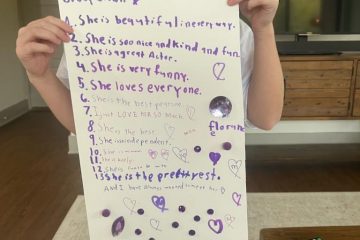 1. She is beautiful in every way.
2. She is soo nice and kind and fun.
3. She is a great Actor.
4. She is very funny.
5. She loves everyone.
6. She is the best person
7. I just LOVE HER SO Much
8. She is the best
9. She is independent.
10. She is
11. She is
12. She is
13. She is the prettyest.
And I have always wanted to meet her